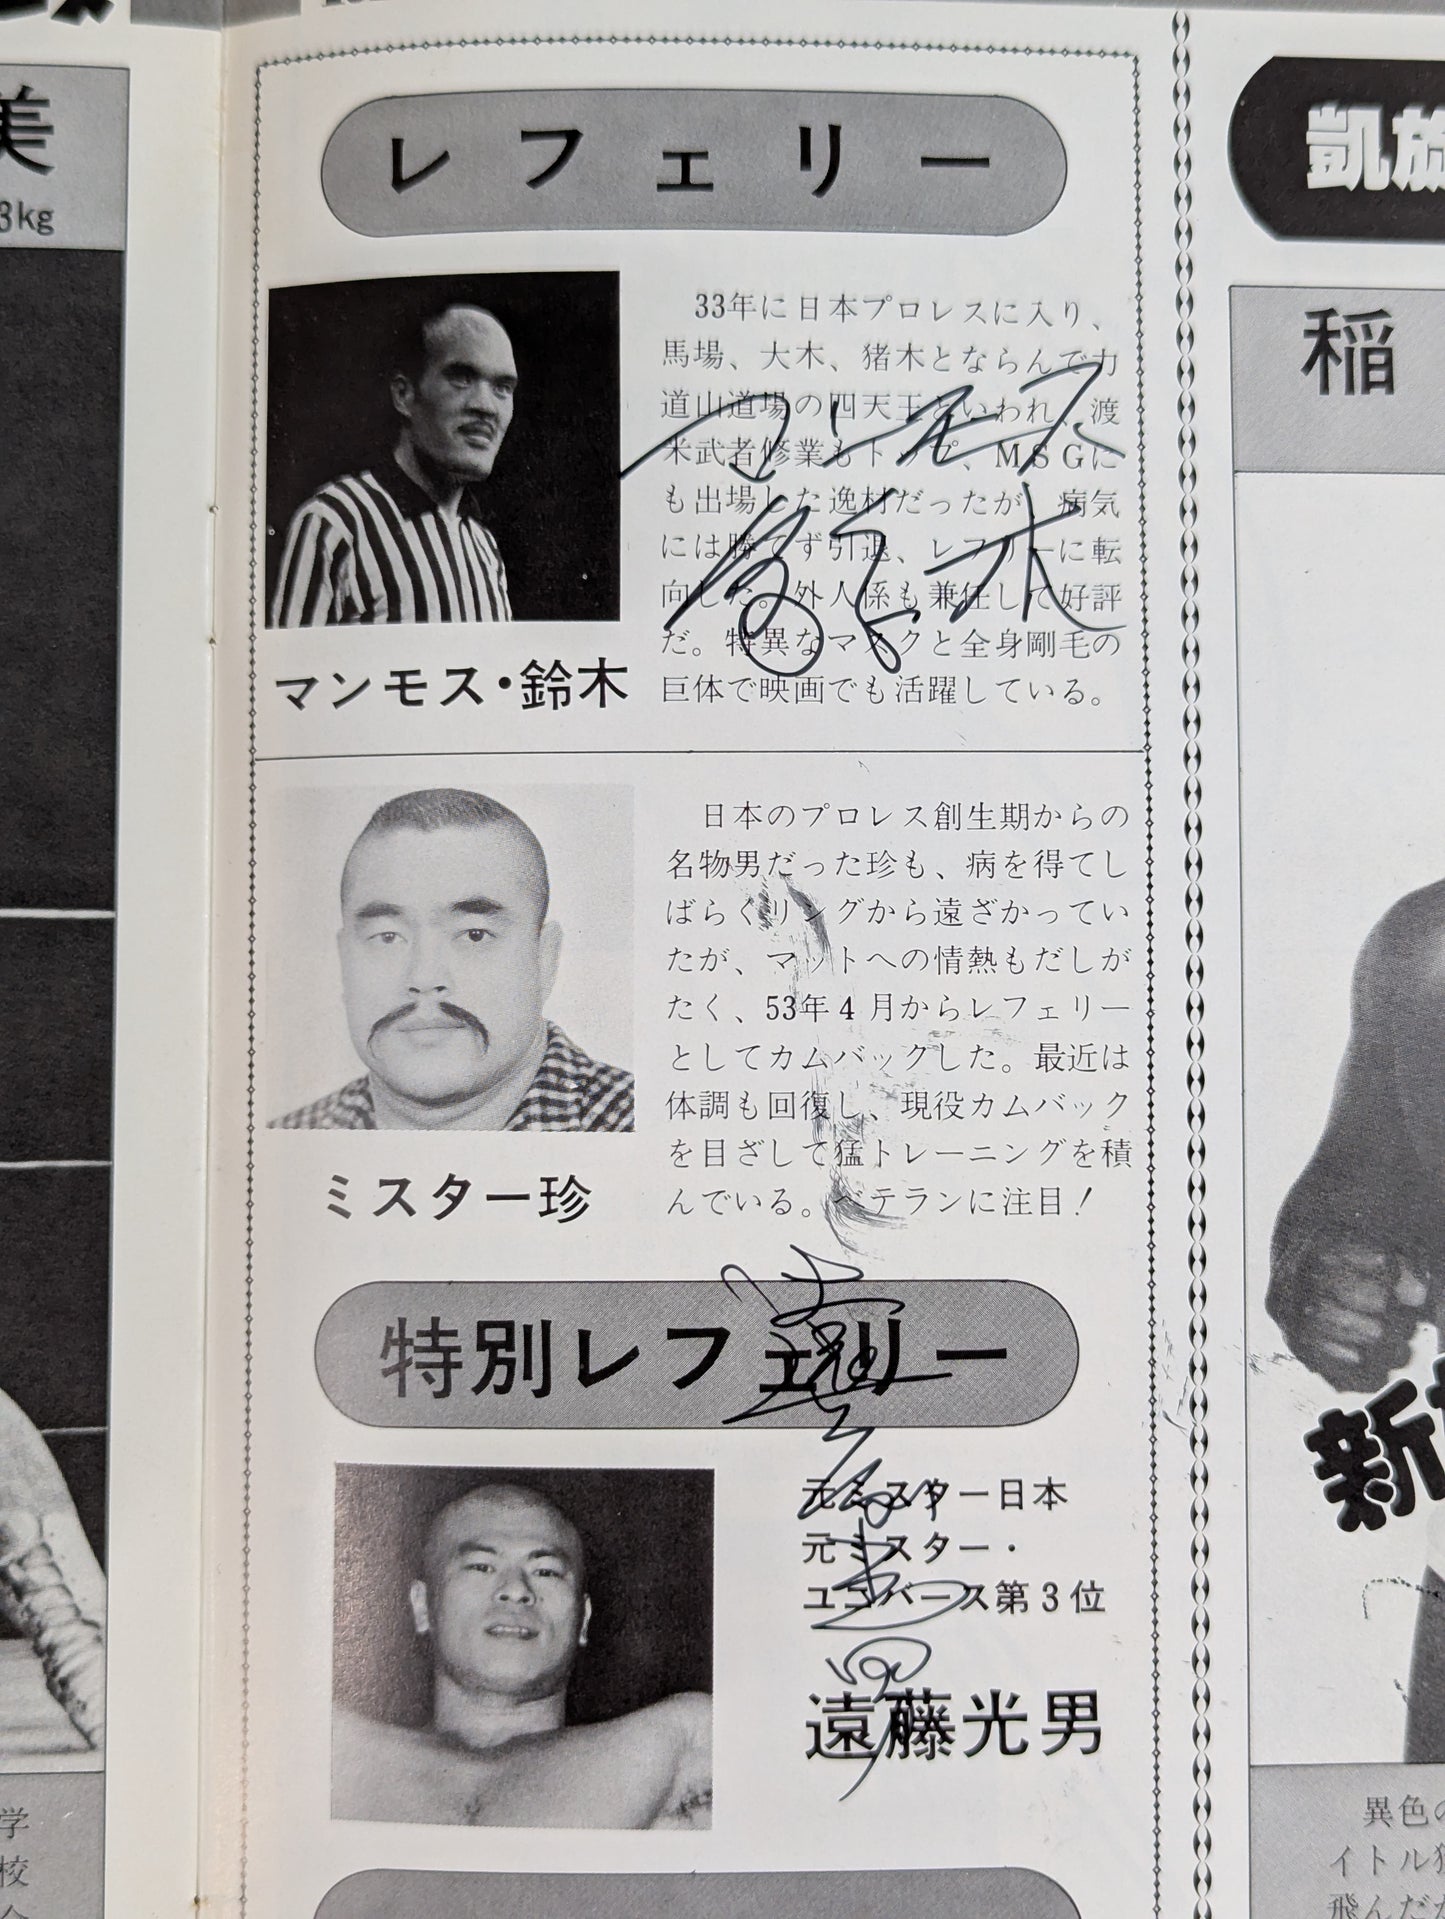 美
3kg
学
校
レフェリー
33年に日本プロレスに入り、
馬場、大木、猪木とならんで力
道山道場の四天王といわれ、渡
米武者修業もトップ、MSGに
も出場した逸材だったが、病気
には勝てず引退、レフリーに転
向した。外人係も兼任して好評
だ。特異なマスクと全身剛毛の
巨体で映画でも活躍している。
マンモス・鈴木
マンモス
鈴木
日本のプロレス創生期からの
名物男だった珍も、病を得てし
ばらくリングから遠ざかってい
たが、マットへの情熱もだしが
たく、53年4月からレフェリー
としてカムバックした。最近は
体調も回復し、現役カムバック
を目ざして猛トレーニングを積
んでいる。ベテランに注目！
ミスター珍
特別レフェリー
元ミスター日本
元ミスター・
ユニバース第3位
遠藤光男
凱旋
稲
新
異色の
イトル
飛んだ